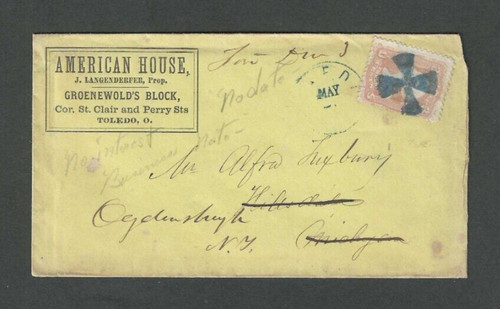 AMERICAN HOUSE,
J. LANGENDERFER, Prop.
GROENEWOLD'S BLOCK,
Cor. St. Clair and Perry Sts
TOLEDO, O.
MAY
No date
No interest
Business Note
Mr Alfred Luxbury
Hillsdale
Ogdensburgh
N.Y.
Michigan